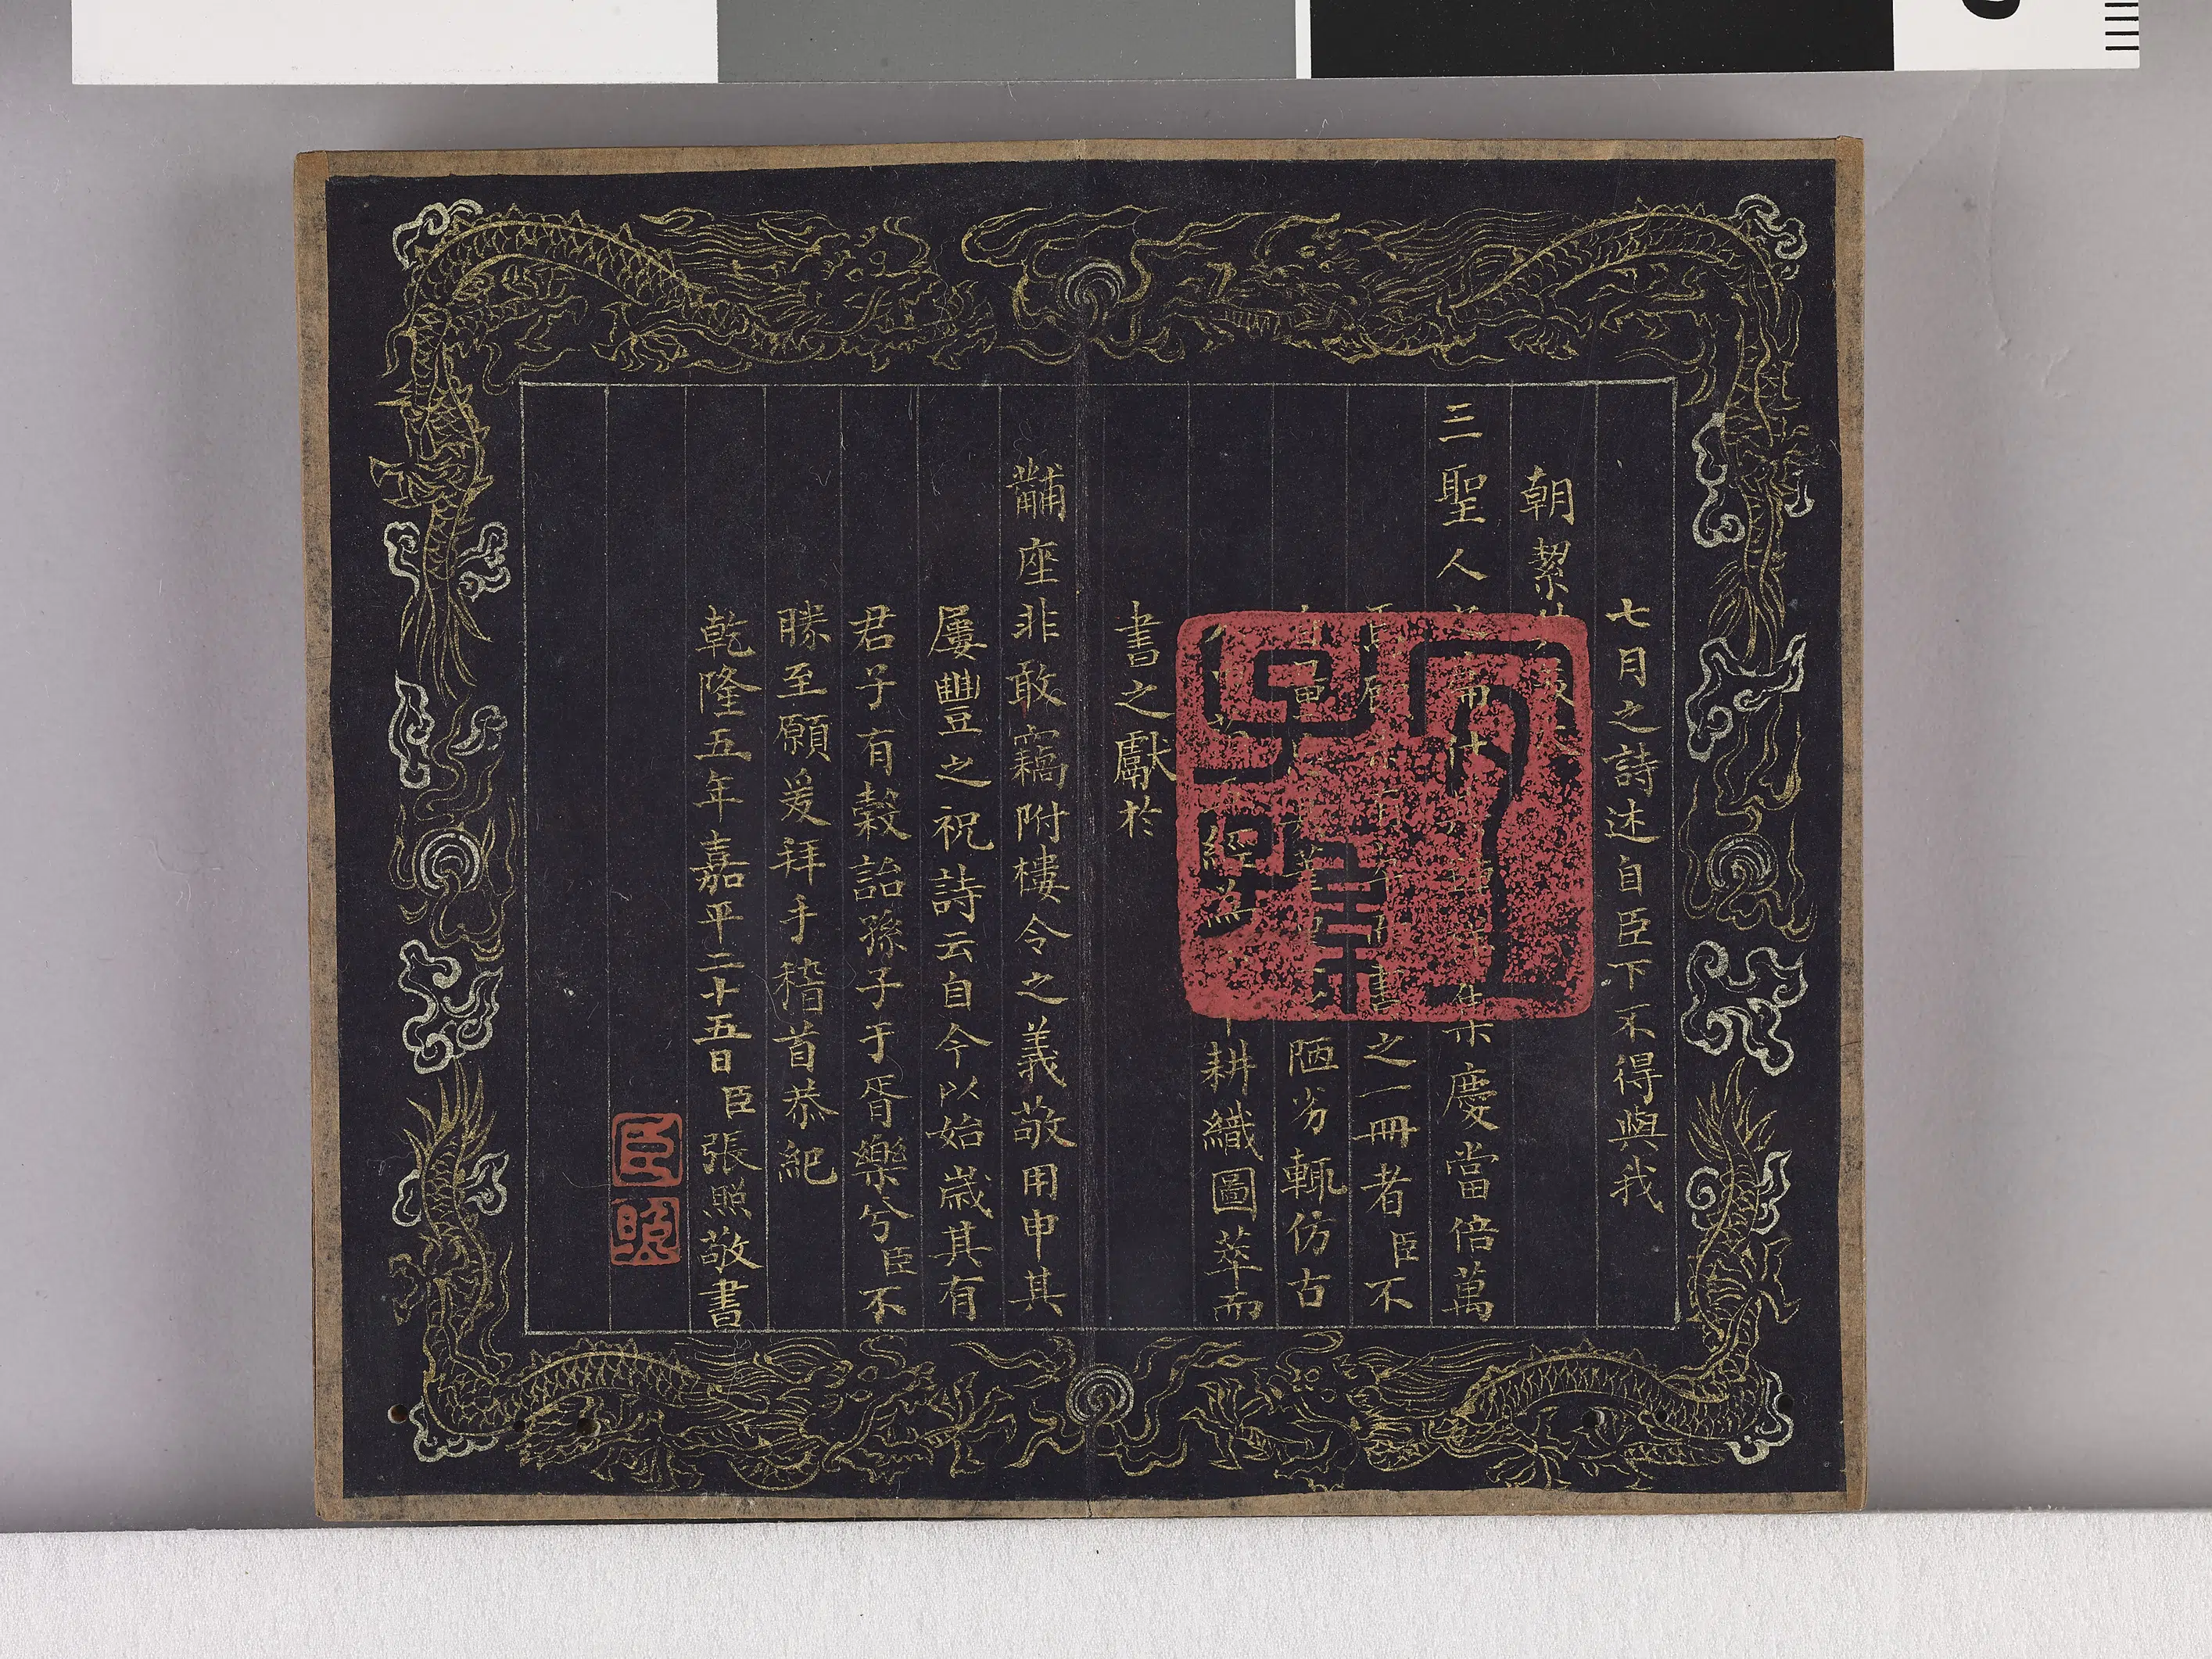 七月之詩述自臣下不得與我
朝絜
三聖人之篇什 慶當倍萬
書之一冊者臣不
自量 陋劣輒仿古
經為 耕織圖萃而
書之獻於
黼座非敢竊附樓令之義敬用申其
屢豐之祝詩云自今以始歲其有
君子有穀詒孫子于胥樂兮臣不
勝至願爰拜手稽首恭紀
乾隆五年嘉平二十五日臣張照敬書
臣
照